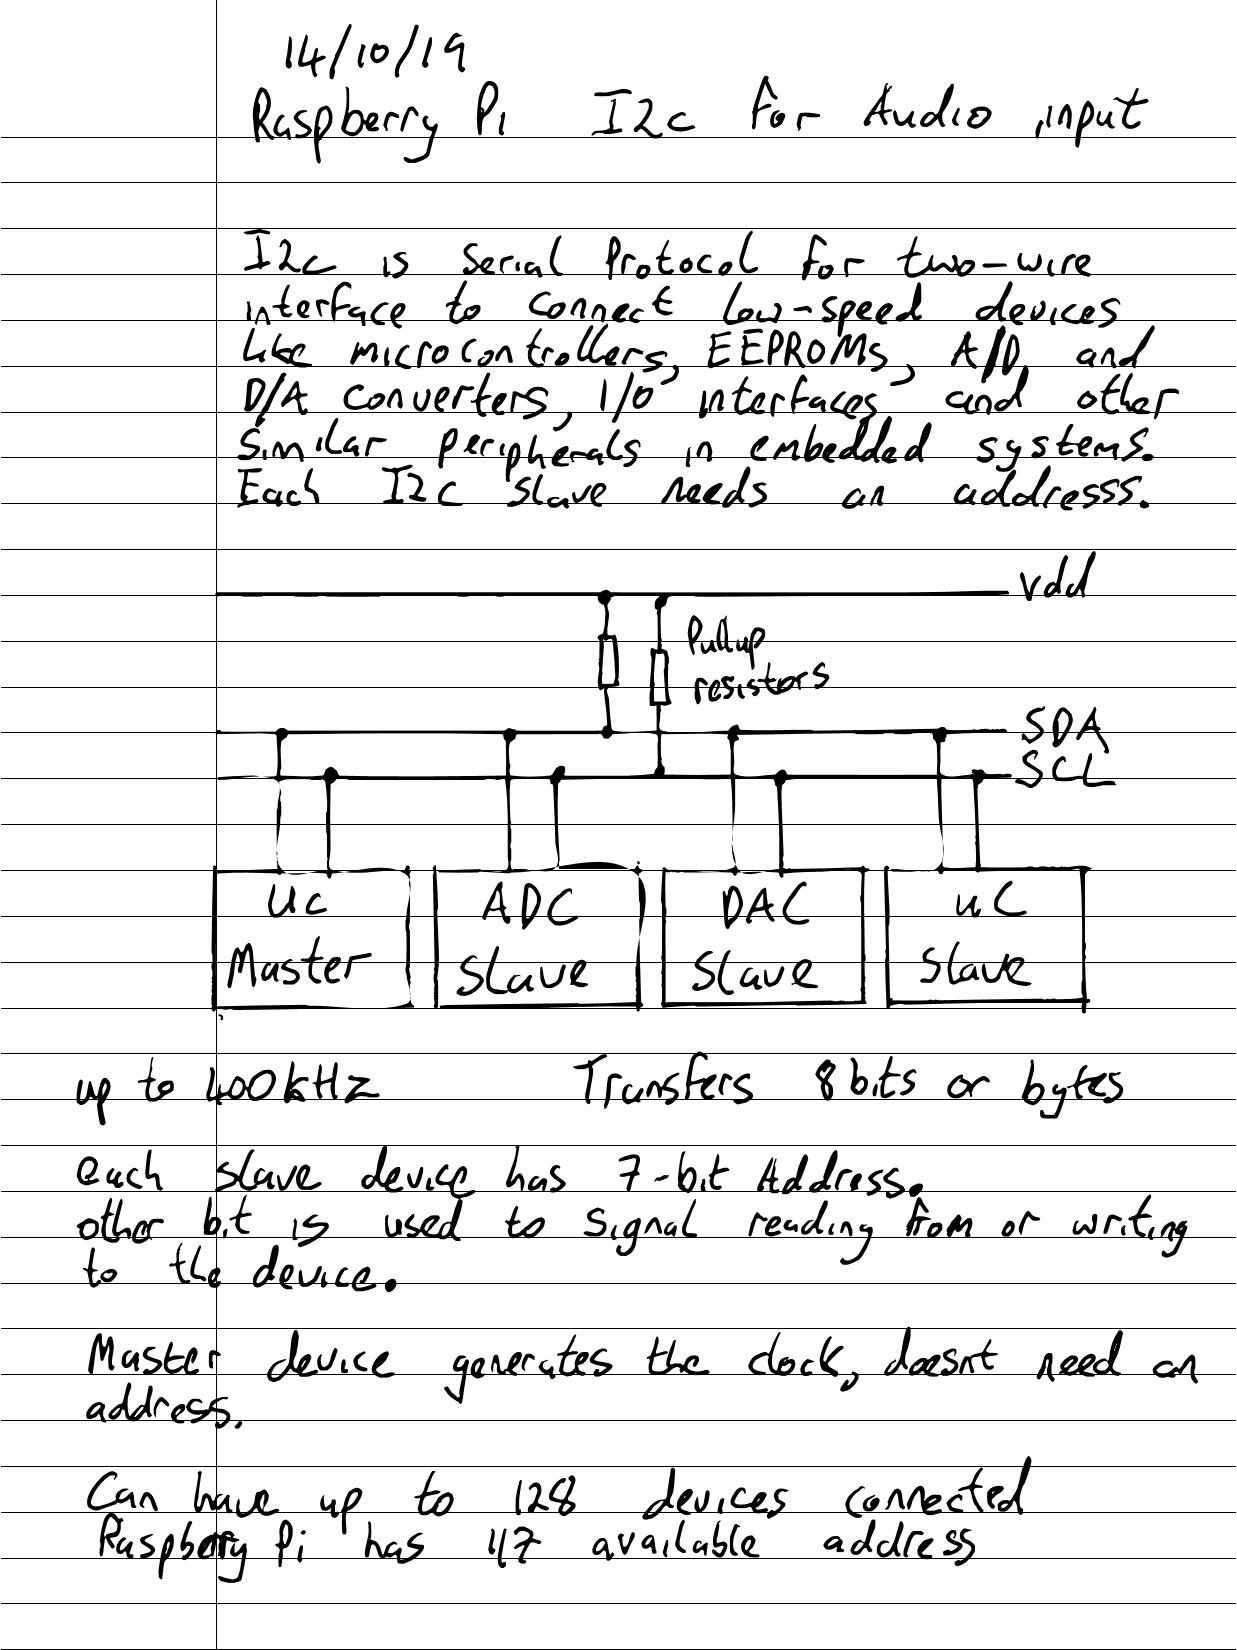 14/10/19
Raspberry Pi I2c For Audio input
I2c is Serial Protocol for two-wire
interface to connect low-speed devices
like microcontrollers, EEPROMs, A/D and
D/A converters, I/O interfaces and other
Similar peripherals in embedded systems.
Each I2C slave needs an addresss.
Vdd
Pullup
resistors
SDA
SCL
Uc
Master
ADC
Slave
DAC
Slave
uC
Slave
up to 400kHz Transfers 8 bits or bytes
each slave device has 7-bit Address.
other bit is used to signal reading from or writing
to the device.
Master device generates the clock, doesnt need an
address.
Can have up to 128 devices connected
Raspberry Pi has 117 available address